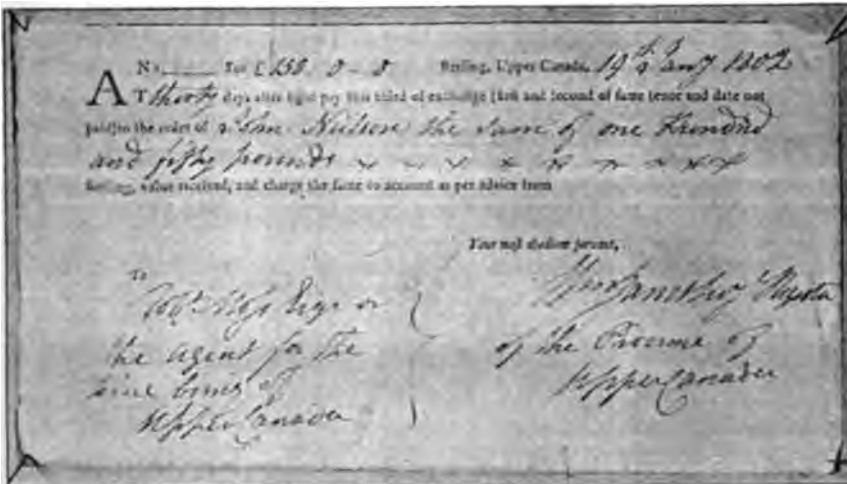 No. For £150. 0 - 0 Sterling, Upper Canada, 19th Jany 1802
AT thirty days after sight pay this third of exchange (first and second of same tenor and date not
paid) to the order of John Neilson the sum of one hundred
and fifty pounds
sterling, value received, and charge the same to account as per advice from
Your most obedient servant,
To
Esqr or
the agent for the
of
Upper Canada
of the Province of
Upper Canada